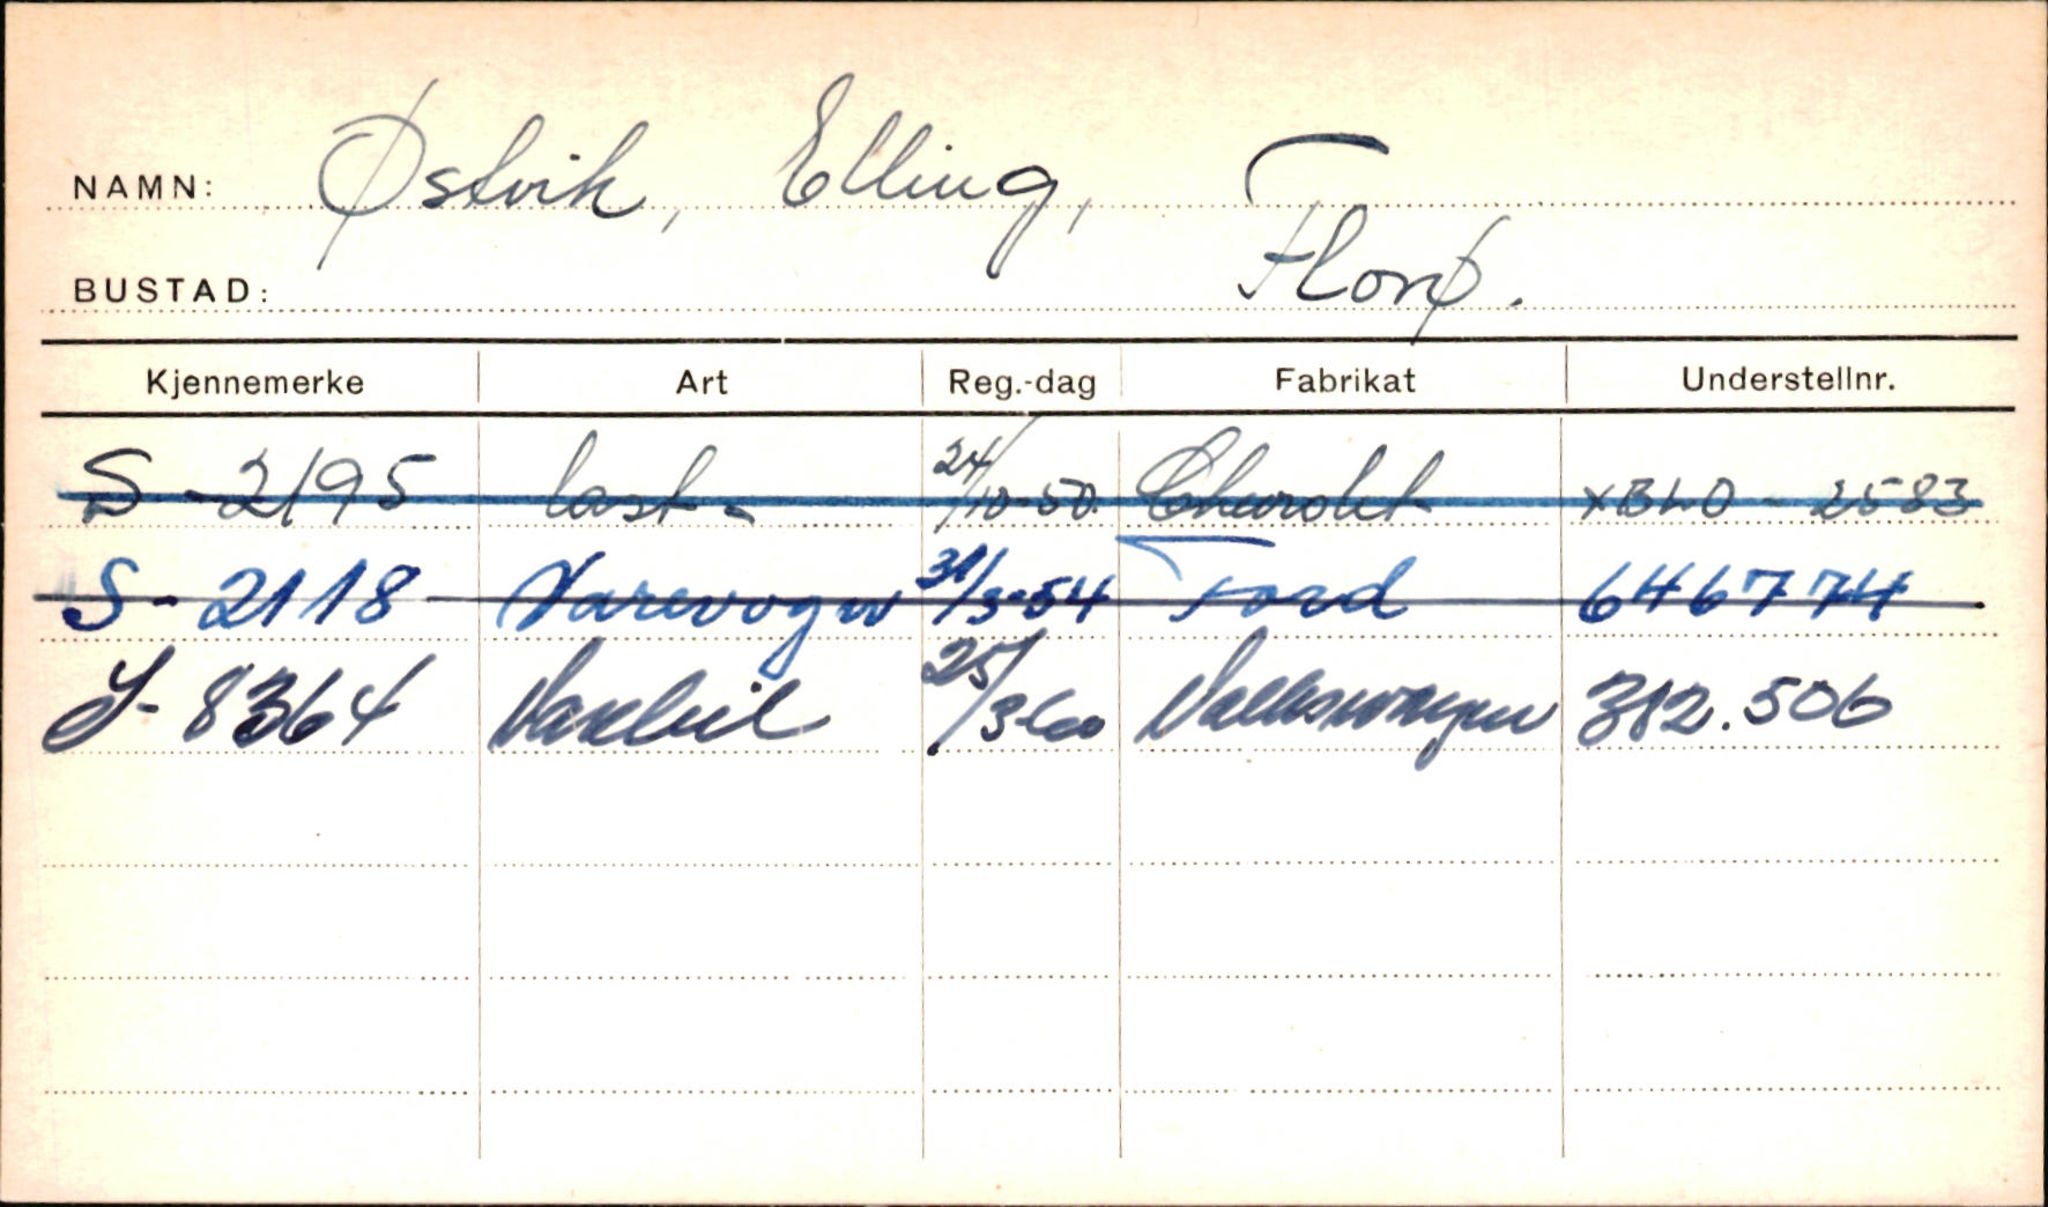 NAMN: Østvik, Elling,
BUSTAD: Florø.
Kjennemerke Art Reg.-dag Fabrikat Understellnr.
S - 2195 last- 24/10-50 Chevrolet XBLO - 2583
S - 2118 Varevogn 31/3-54 Ford 646774
S- 8364 Varebil 25/3-60 Volkswagen 382.506